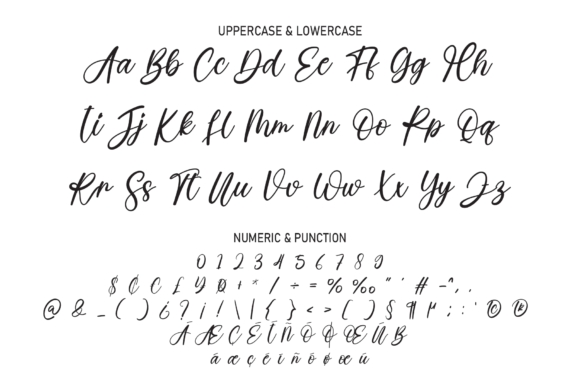 UPPERCASE & LOWERCASE
Aa Bb Cc Dd Ee Ff Gg Hh
Ii Jj Kk Ll Mm Nn Oo Pp Qq
Rr Ss Tt Uu Vv Ww Xx Yy Zz
NUMERIC & PUNCTION
0 1 2 3 4 5 6 7 8 9
$ ₡ C £ ¥ Ø + * / ÷ = % ‰ " ' # - ^ , .
@ & _ ( ) ¿ ? ¡ ! \ | { } < > [ ] § ¶ µ ; : ' © ®
Ã Æ Ç Ẽ Ĩ Ñ Õ Ø Œ Ũ ß
ã æ ç ẽ ĩ ñ õ ø œ ũ